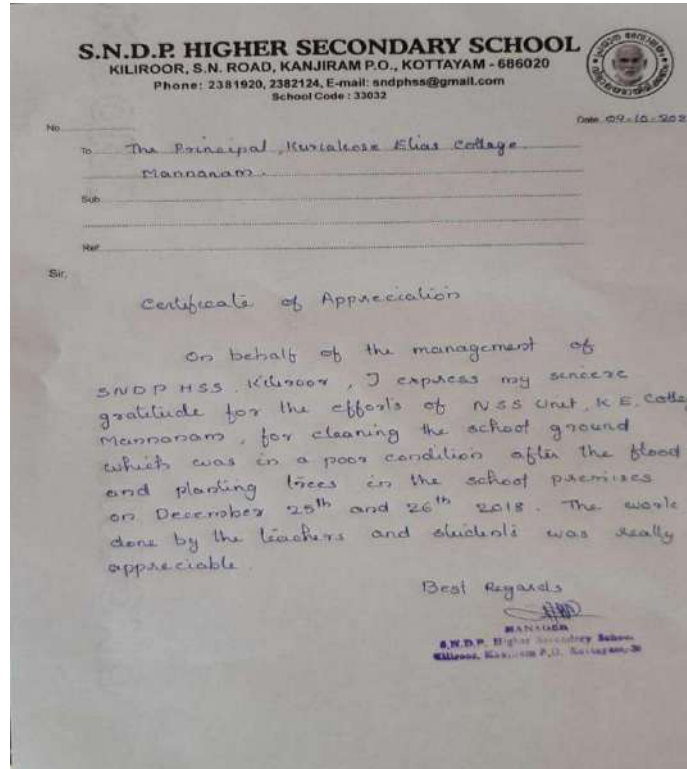 S.N.D.P. HIGHER SECONDARY SCHOOL
KILIROOR, S.N. ROAD, KANJIRAM P.O., KOTTAYAM - 686020
Phone: 2381920, 2382124, E-mail: sndphss@gmail.com
School Code : 33032
No
Date 09-10-202
To The Principal, Kuriakose Elias College
Mannanam.
Sub
Ref
Sir,
Certificate of Appreciation
On behalf of the management of
SNDP HSS Kiliroor, I express my sincere
gratitude for the efforts of NSS Unit, K.E. Colle
Mannanam, for cleaning the school ground
which was in a poor condition after the flood
and planting trees in the school premises
on December 25th and 26th 2018. The work
done by the teachers and students was really
appreciable.
Best Regards
MANAGER
S.N.D.P. Higher Secondary School
Kiliroor, Kanjiram P.O. Kottayam-20